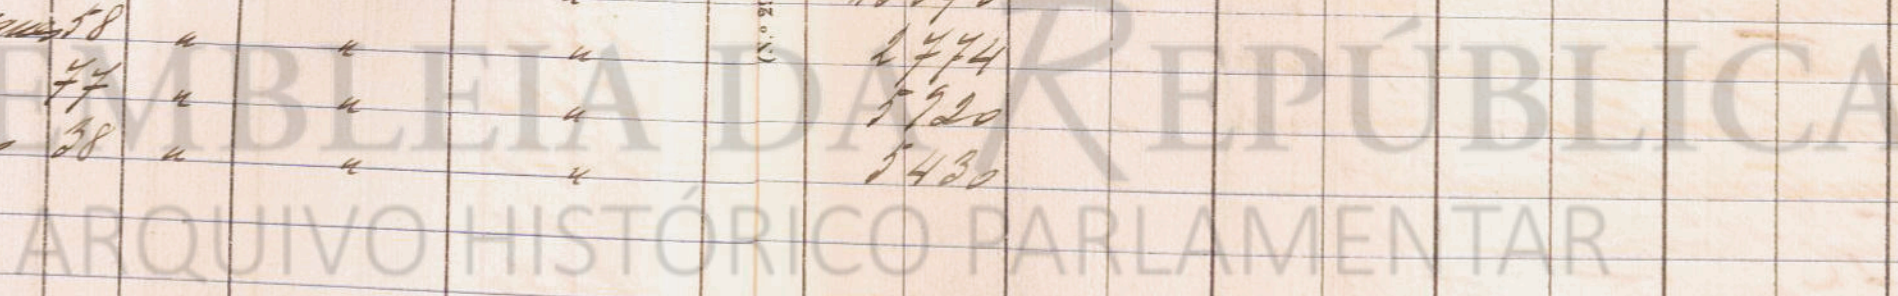 58 " " " 2774
77 " " " 5920
38 " " " 5430
ASSEMBLEIA DA REPÚBLICA
ARQUIVO HISTÓRICO PARLAMENTAR